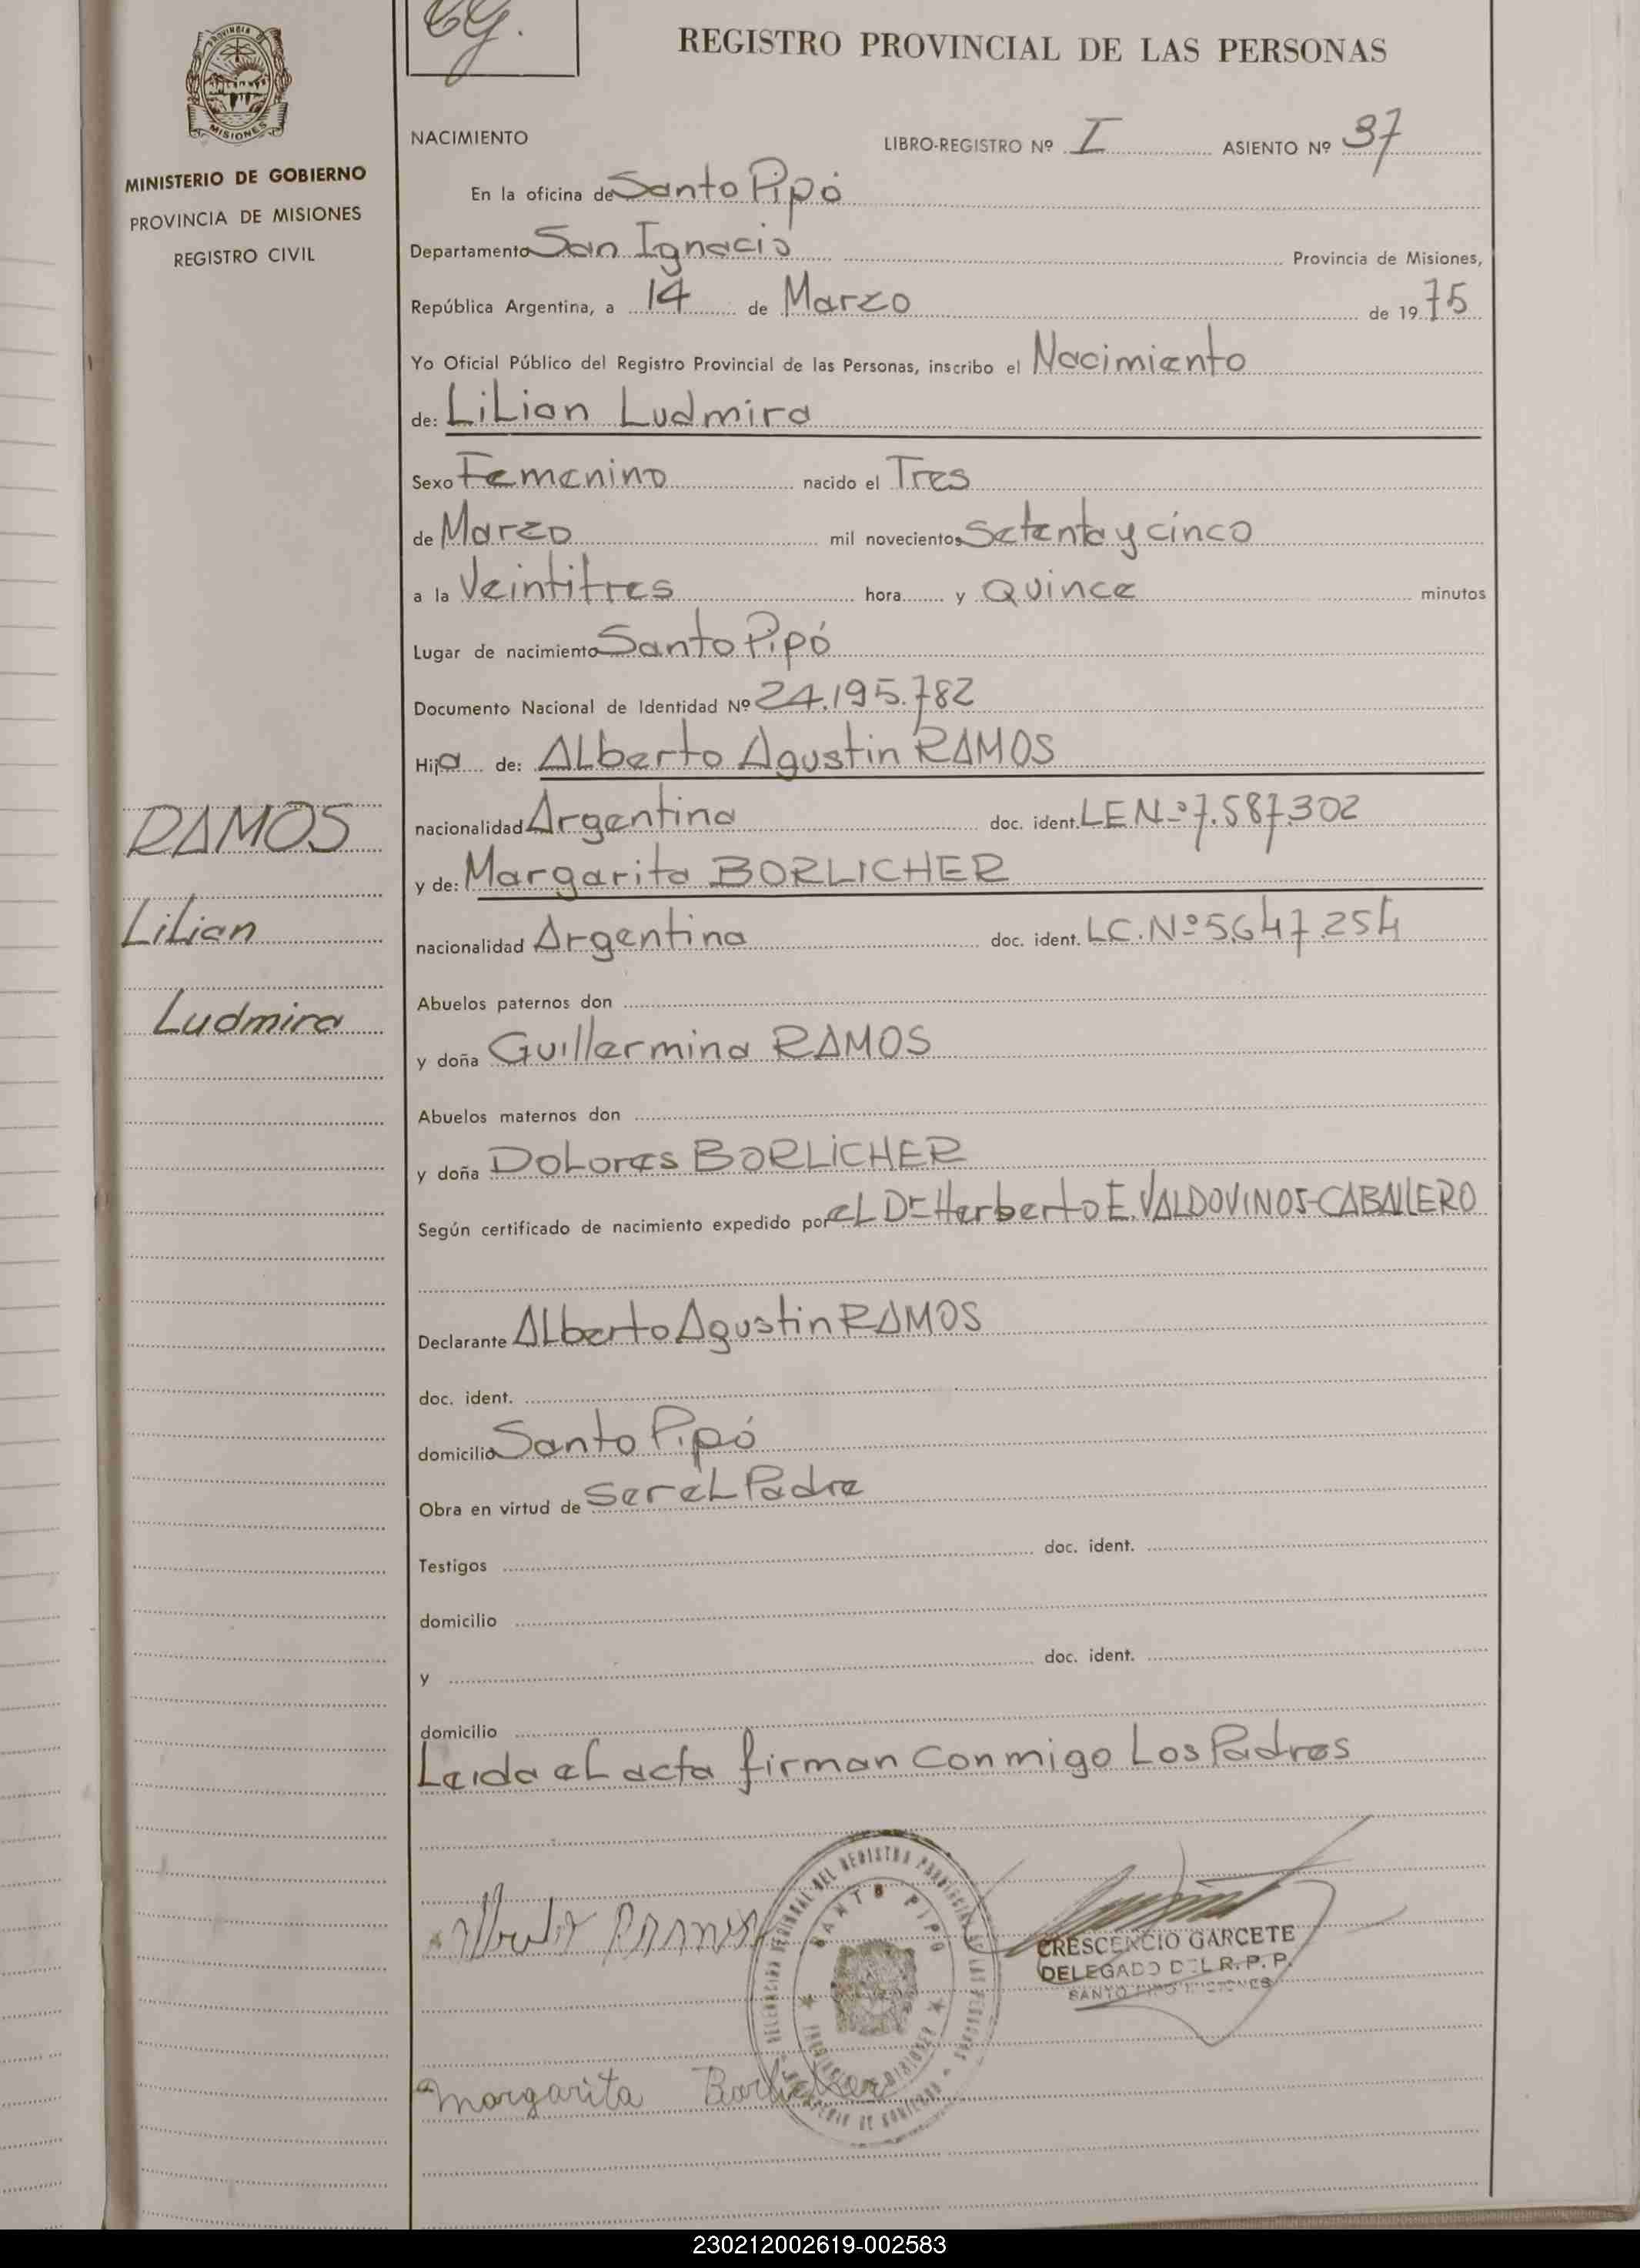 69.
REGISTRO PROVINCIAL DE LAS PERSONAS
PROVINCIA DE
MISIONES
MINISTERIO DE GOBIERNO
PROVINCIA DE MISIONES
REGISTRO CIVIL
NACIMIENTO
LIBRO-REGISTRO Nº I ASIENTO Nº 37
En la oficina de Santo Pipó
Departamento San Ignacio Provincia de Misiones,
República Argentina, a 14 de Marzo de 1975
Yo Oficial Público del Registro Provincial de las Personas, inscribo el Nacimiento
de: LiLian Ludmira
Sexo Femenino nacido el Tres
de Marzo mil novecientos Setenta y cinco
a la Veintitres hora y Quince minutos
Lugar de nacimiento Santo Pipó
Documento Nacional de Identidad Nº 24.195.782
Hija de: ALberto Agustin RAMOS
nacionalidad Argentina doc. ident. LE Nº 7.587.302
y de: Margarita BORLICHER
nacionalidad Argentina doc. ident. LC. Nº 5.647.254
Abuelos paternos don
y doña Guillermina RAMOS
Abuelos maternos don
y doña DoLores BORLiCHER
Según certificado de nacimiento expedido por eL Dr Herberto E. VALDOVINOS-CABALLERO
Declarante ALberto Agustin RAMOS
doc. ident.
domicilio Santo Pipó
Obra en virtud de ser eL Padre
Testigos doc. ident.
domicilio
y doc. ident.
domicilio
Leida eL acta firman conmigo Los Padres
RAMOS
Lilian
Ludmira
Alberto Ramos
CRESCENCIO GARCETE
DELEGADO DEL R. P. P.
SANTO PIPO MISIONES
SANTO PIPO
Margarita Borlicher
230212002619-002583